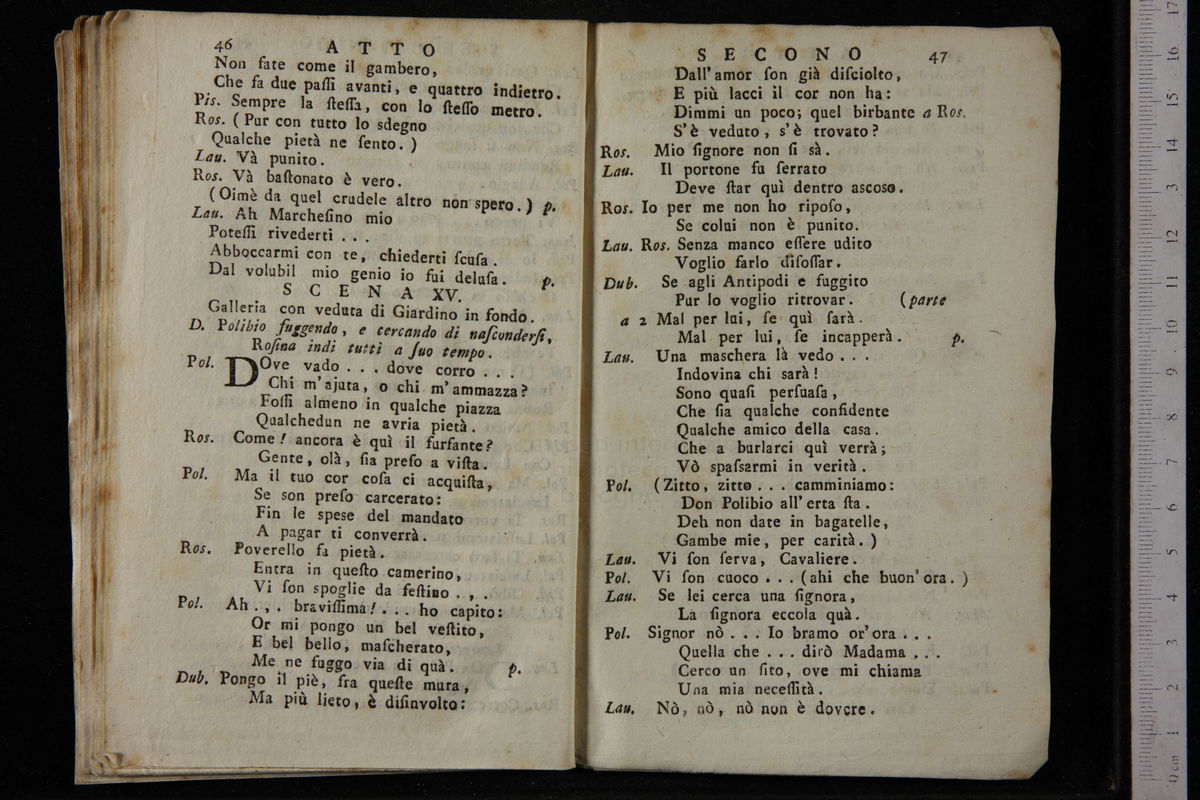 46 ATTO
Non fate come il gambero,
Che fa due paſſi avanti, e quattro indietro.
Pis. Sempre la ſteſſa, con lo ſteſſo metro.
Ros. (Pur con tutto lo sdegno
Qualche pietà ne ſento.)
Lau. Và punito.
Ros. Và baſtonato è vero.
(Oimè da quel crudele altro non spero.) p.
Lau. Ah Marcheſino mio
Poteſſi rivederti . . .
Abboccarmi con te, chiederti ſcuſa.
Dal volubil mio genio io fui deluſa. p.
SCENA XV.
Galleria con veduta di Giardino in fondo.
D. Polibio fuggendo, e cercando di naſconderſi,
Roſina indi tutti a ſuo tempo.
Pol. DOve vado . . . dove corro . . .
Chi m'ajuta, o chi m'ammazza?
Foſſi almeno in qualche piazza
Qualchedun ne avria pietà.
Ros. Come! ancora è quì il furfante?
Gente, olà, ſia preſo a viſta.
Pol. Ma il tuo cor coſa ci acquiſta,
Se son preſo carcerato:
Fin le spese del mandato
A pagar ti converrà.
Ros. Poverello fa pietà.
Entra in queſto camerino,
Vi ſon spoglie da feſtino . , .
Pol. Ah . , . braviſſima! . . . ho capito:
Or mi pongo un bel veſtito,
E bel bello, maſcherato,
Me ne fuggo via di quà. p.
Dub. Pongo il piè, fra queſte mura,
Ma più lieto, è diſinvolto:
SECONO 47
Dall'amor ſon già diſciolto,
E più lacci il cor non ha:
Dimmi un poco; quel birbante a Ros.
S'è veduto, s'è trovato?
Ros. Mio ſignore non ſi sà.
Lau. Il portone fu ſerrato
Deve ſtar quì dentro ascoso.
Ros. Io per me non ho ripoſo,
Se colui non è punito.
Lau. Ros. Senza manco eſſere udito
Voglio farlo diſoſſar.
Dub. Se agli Antipodi e fuggito
Pur lo voglio ritrovar. (parte
a 2 Mal per lui, ſe quì farà.
Mal per lui, ſe incapperà. p.
Lau. Una maschera là vedo . . .
Indovina chi sarà!
Sono quaſi perſuaſa,
Che ſia qualche confidente
Qualche amico della casa.
Che a burlarci quì verrà;
Vò spaſsarmi in verità.
Pol. (Zitto, zitto . . . camminiamo:
Don Polibio all' erta ſta.
Deh non date in bagatelle,
Gambe mie, per carità.)
Lau. Vi ſon ſerva, Cavaliere.
Pol. Vi ſon cuoco . . . (ahi che buon'ora.)
Lau. Se lei cerca una ſignora,
La ſignora eccola quà.
Pol. Signor nò . . . Io bramo or'ora . . .
Quella che . . . dirò Madama . . .
Cerco un ſito, ove mi chiama
Una mia neceſſità.
Lau. Nò, nò, nò non è dovere.